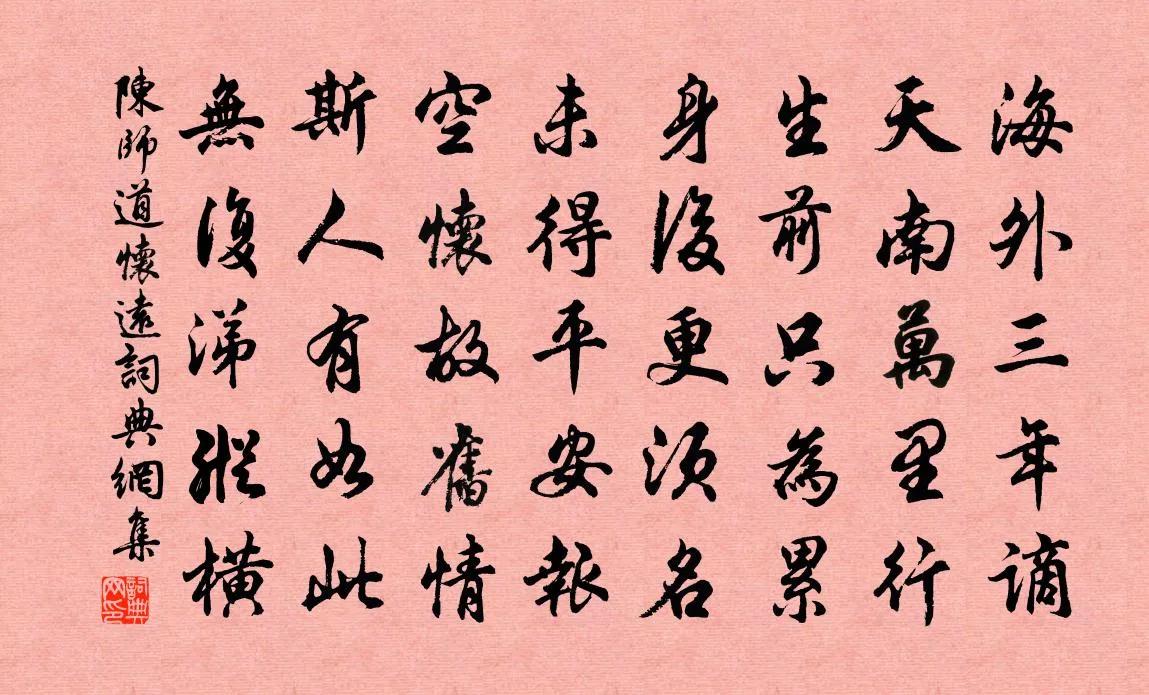 海外三年謫
天南萬里行
生前只為累
身後更須名
未得平安報
空懷故舊情
斯人有如此
無復涕縱橫
陳師道懷遠詞典網集
詞典
网印